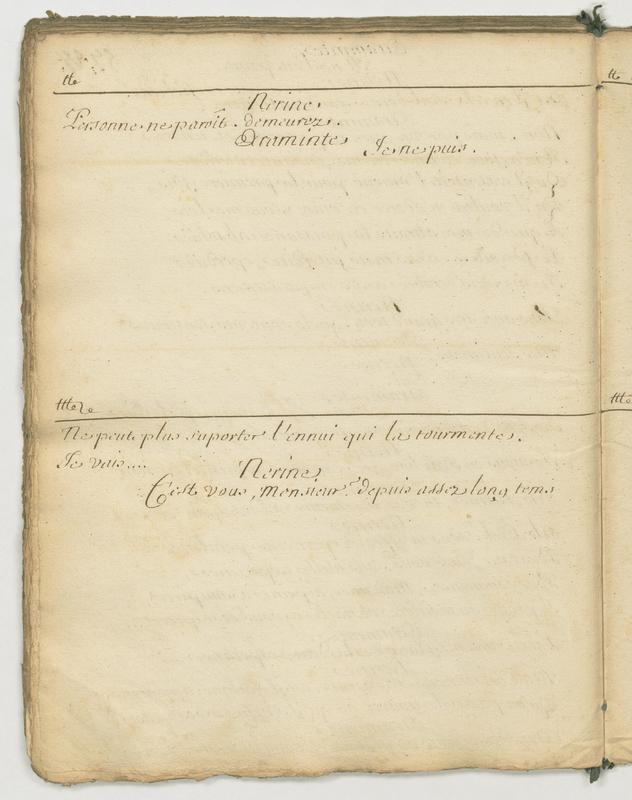 tte
Nerine.
Personne ne paroît. demeurez.
Araminte
Je ne puis.
ttte 2e
Ne peut plus suporter l'ennui qui la tourmente.
Je vais....
Nerine
C'est vous, Monsieur? depuis assez long tems